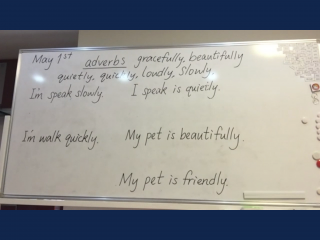 May 1st adverbs gracefully, beautifully
quietly, quickly, loudly, slowly,
I'm speak slowly. I speak is quietly.
I'm walk quickly. My pet is beautifully.
My pet is friendly.